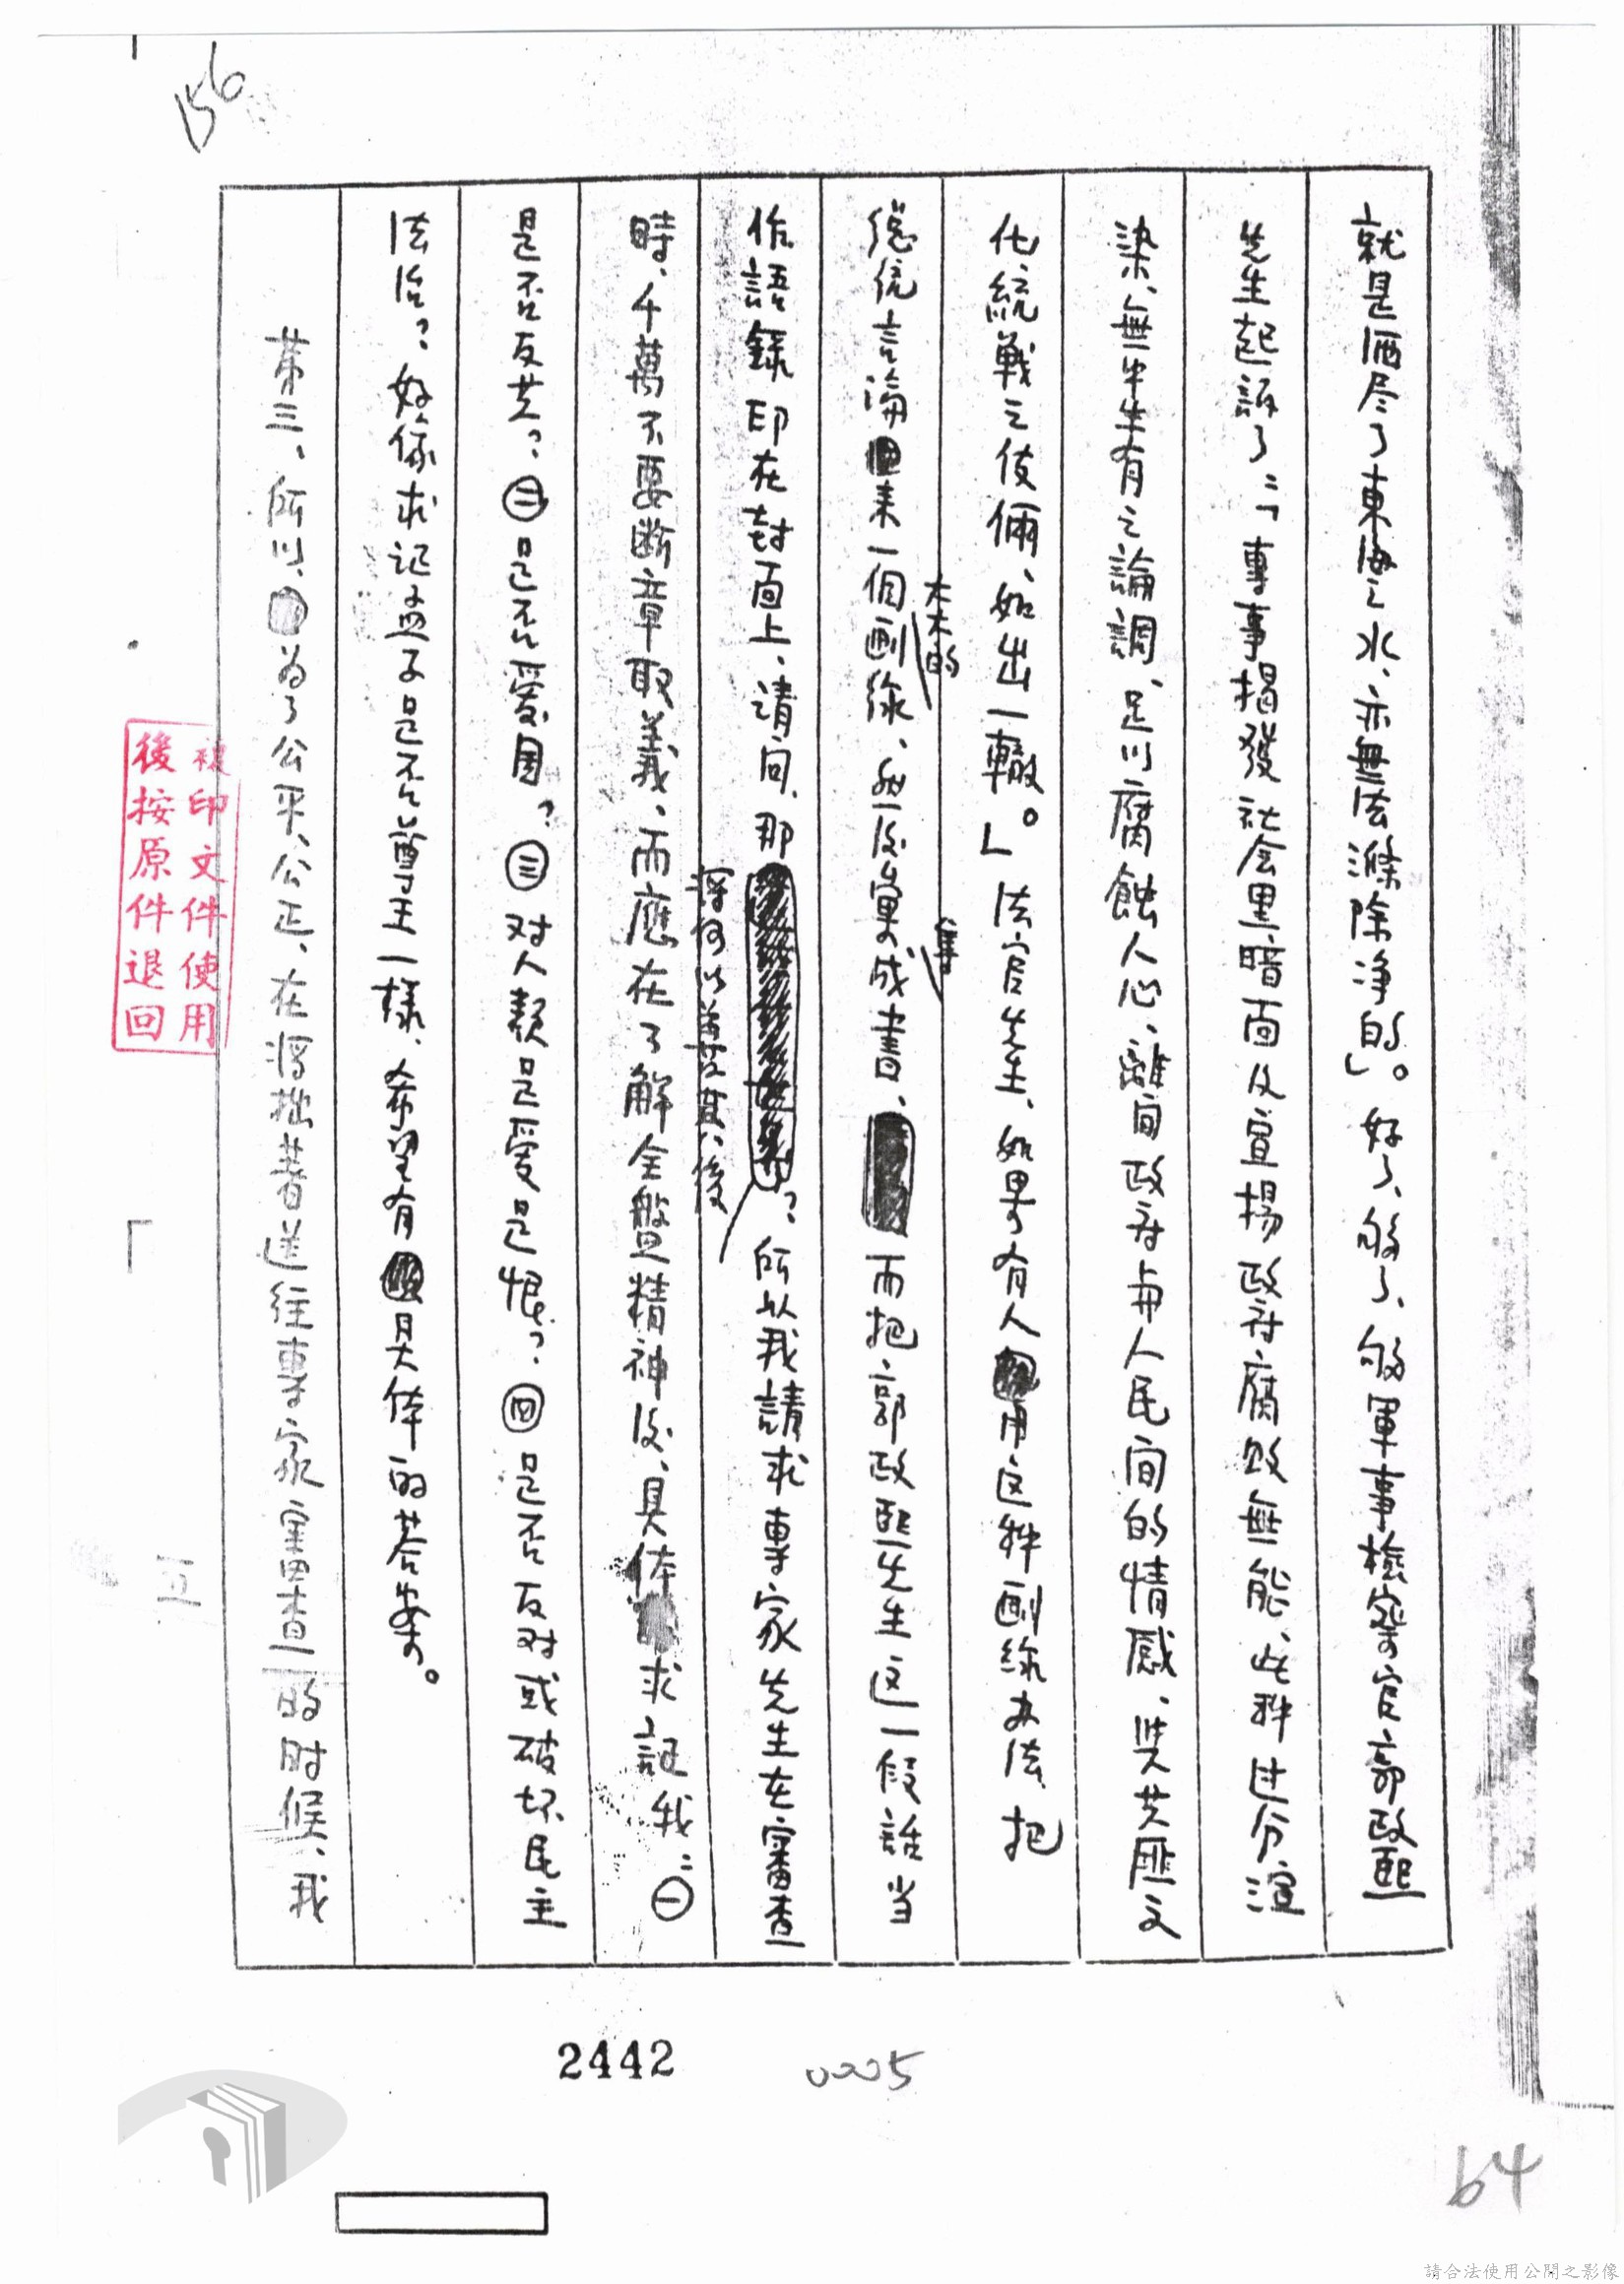 156
就是洒尽了東海之水、亦無法滌除净的」。好了、够了、够軍事檢察官郭政熙
先生起訴了：「專事揭發社会里暗面及宣揚政府腐敗無能、此种过分渲
染、無中生有之論調、足以腐蝕人心、離间政府与人民间的情感、與共匪文
化統戰之伎倆、如出一轍。」法官先生、如果有人用这种割綠办法、把
总统言論来一個割綠、然後彙成書、而把郭政熙先生这一段話当
木木的
集
作語録印在封面上、请问、那？所以我請求專家先生在審查
將何以善其後
時、千萬不要断章取義、而應在了解全盤精神後、具体求証我：㊀
是否反共？㊁是否爱国？㊂对人類是爱是恨？㊃是否反对或破坏民主
法治？好像求记孟子是不是尊王一樣、希望有具体的荅案。
第三、所以、为了公平、公正、在将拙著送往專家審查的时候、我
複印文件使用
後按原件退回
2442
0005
64
請合法使用公開之影像